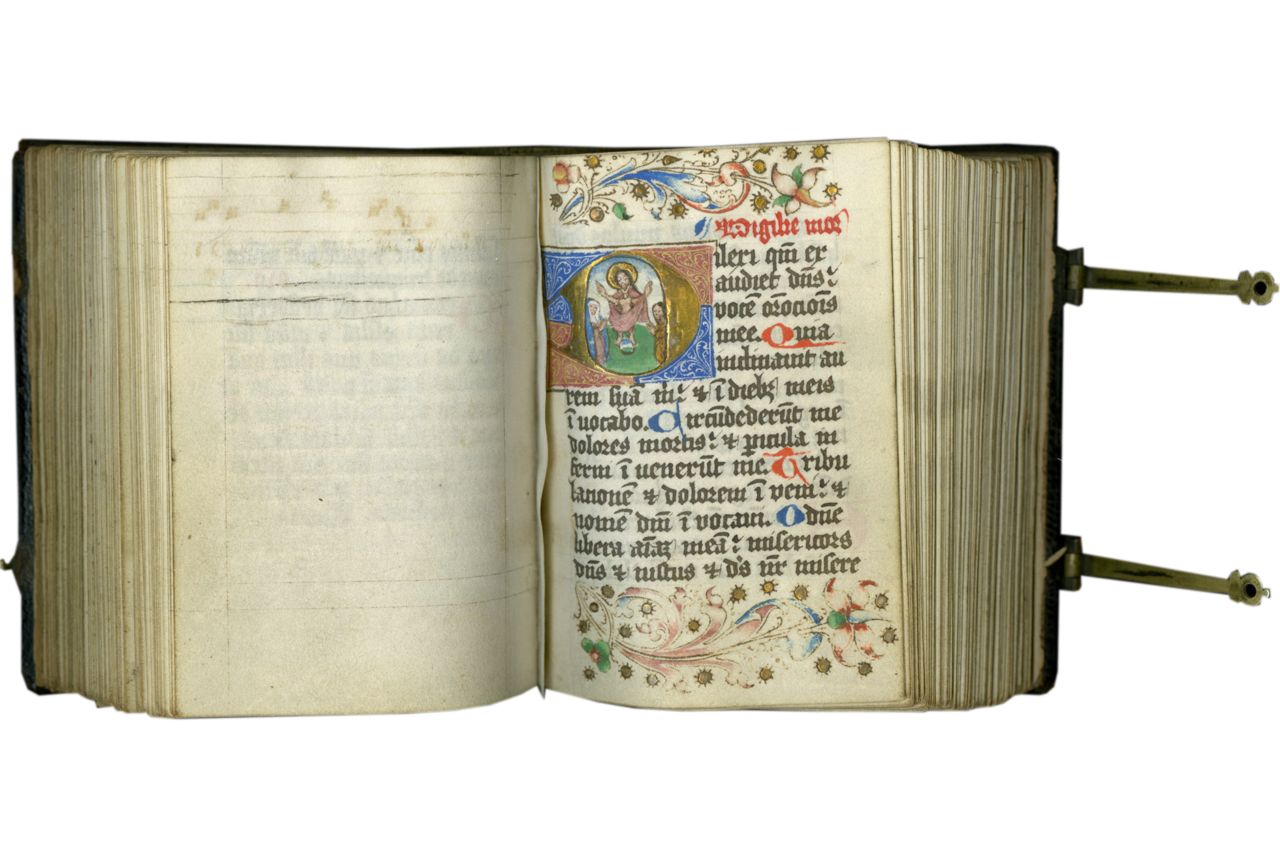 Vigilie mor
Dileri qm̄ ex
audiet dn̄s:
vocē or̄ocōis
mee. Quia
inclinauit au
rem suā m̄: ⁊ ī diebꝫ meis
ī uocabo. Circūdederūt me
dolores mortis: ⁊ ꝑicula in
ferni ī uenerūt me. Tribu
lationē ⁊ dolorem ī veni: ⁊
nomē dn̄i ī vocaui. O dn̄e
libera aīaꝫ meā: misericors
dn̄s ⁊ iustus ⁊ d̄s nr̄ misere